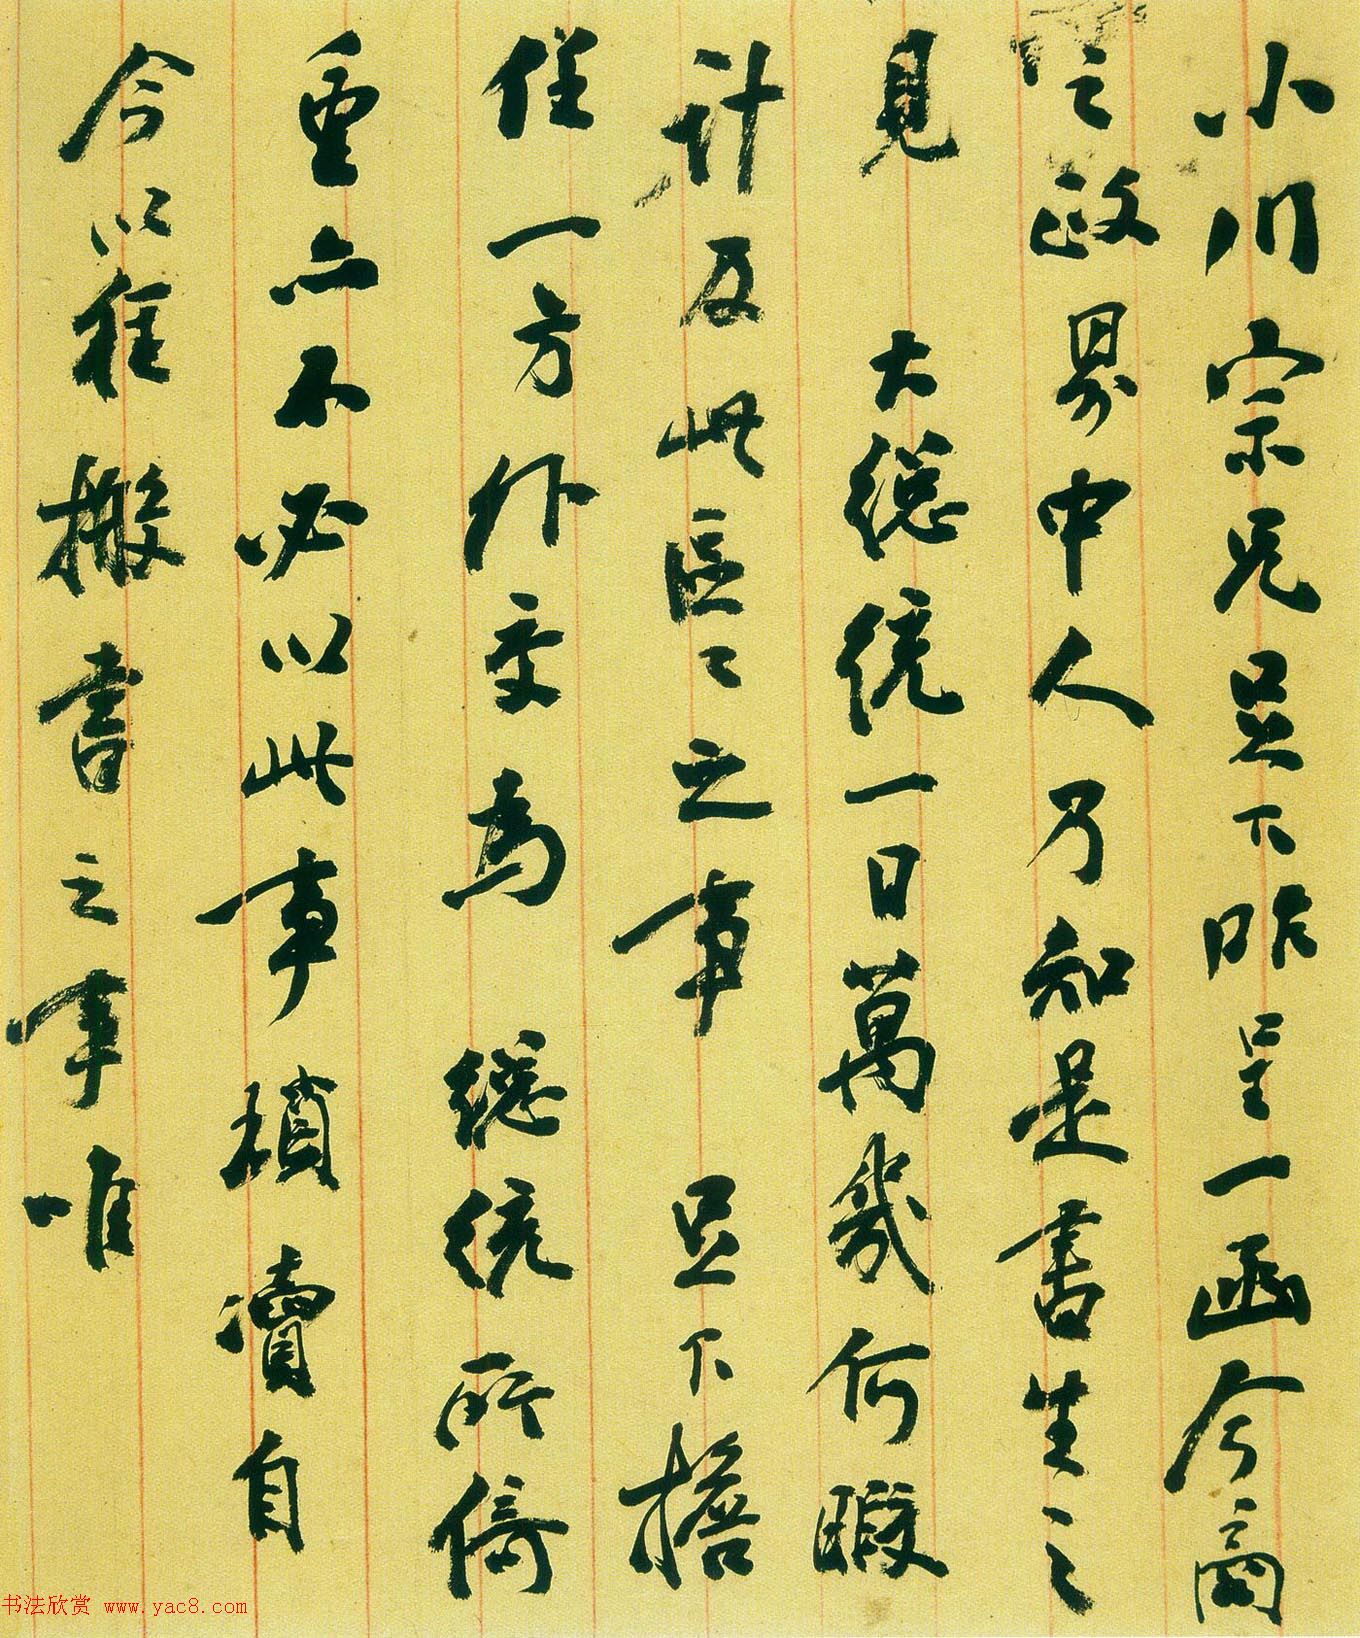 小川宗兄足下昨呈一函今商
之政界中人乃知是書生之
見 大總統一日萬幾何暇
計及此區〻之事 足下擔
任一方外交為 總統所倚
重亦不必以此事瑣瀆自
今以往搬書之事唯
书法欣赏 www.yac8.com